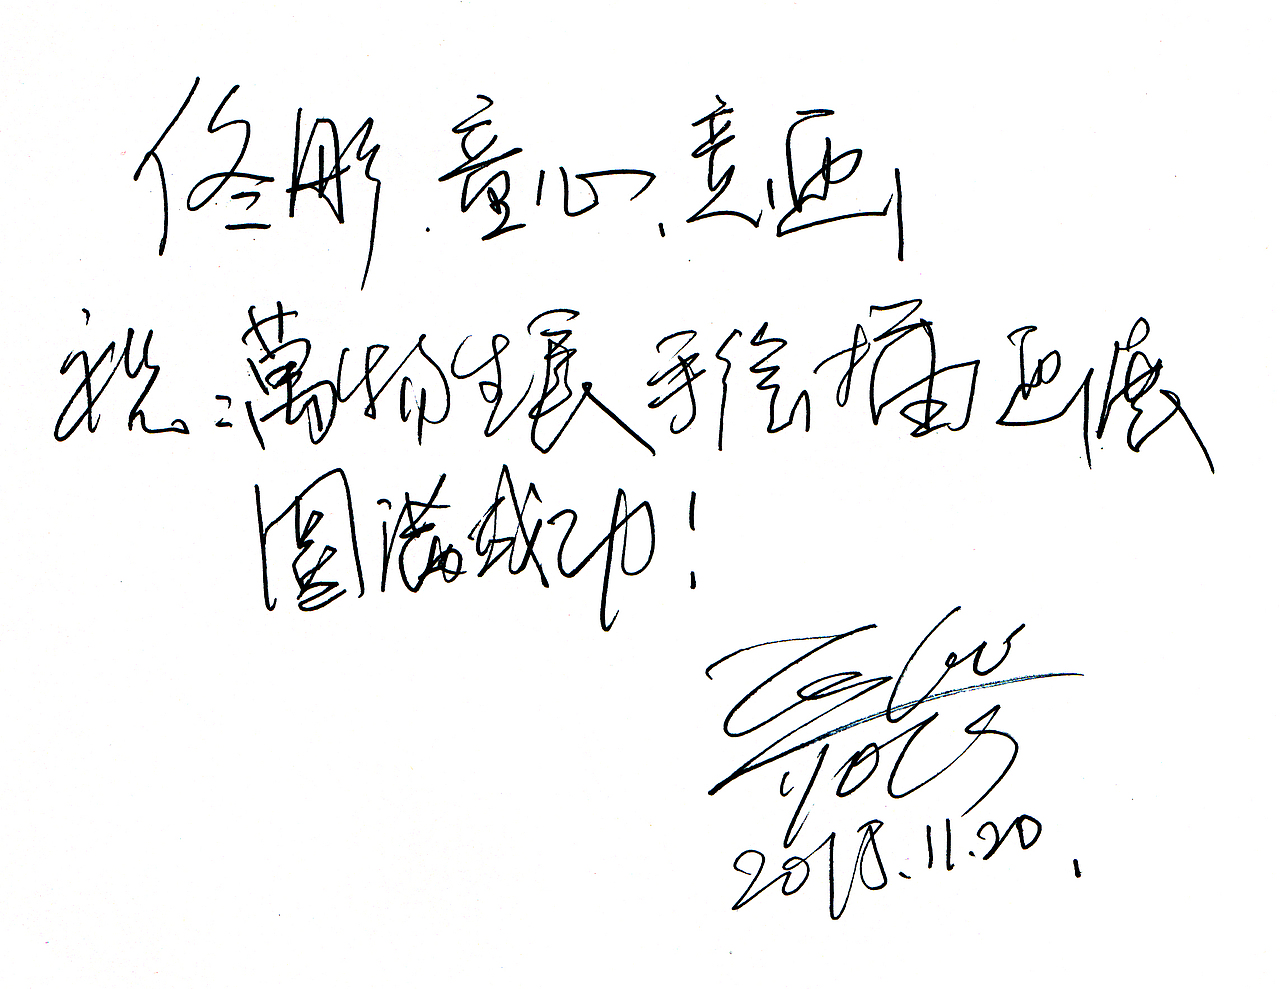 佟彤.童心.意画
祝:萬物生長手绘插画展
圆满成功!
2018.11.20.